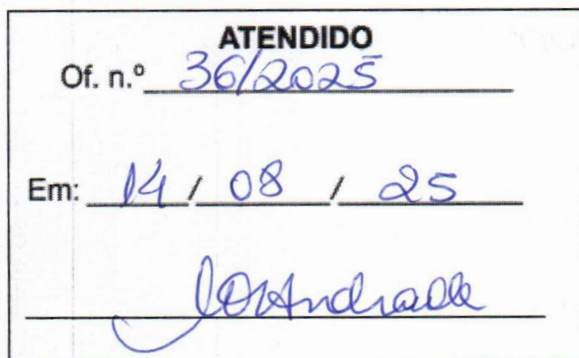 ATENDIDO
Of. n.º 36/2025
Em: 14 / 08 / 25